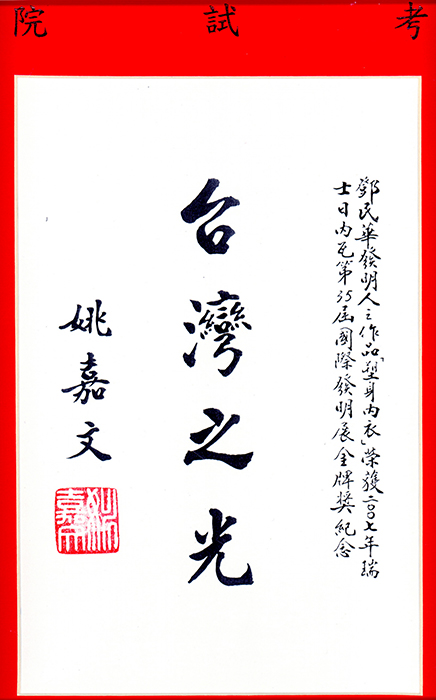 考試院
鄧民華發明人之作品「塑身內衣」榮獲二〇〇七年瑞
士日內瓦第35屆國際發明展金牌獎紀念
台灣之光
姚嘉文